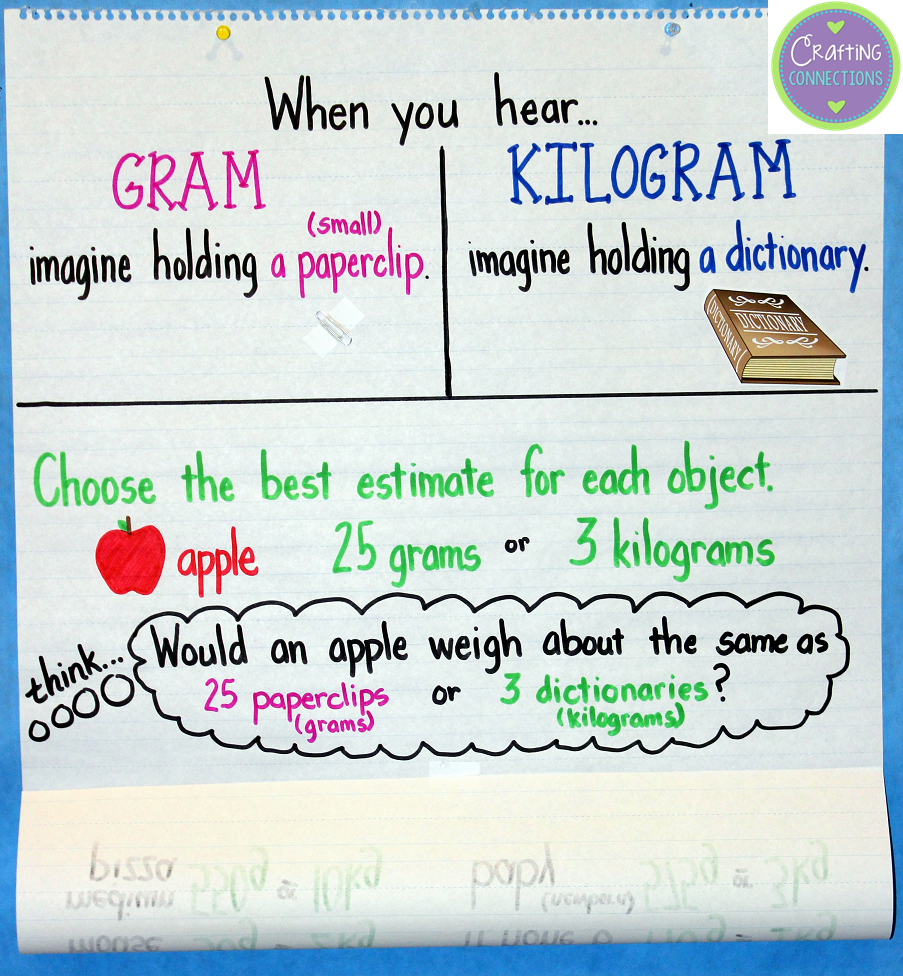 Crafting
CONNECTIONS
When you hear...
GRAM
(small)
imagine holding a paperclip.
KILOGRAM
imagine holding a dictionary.
DICTIONARY
DICTIONARY
Choose the best estimate for each object.
apple 25 grams or 3 kilograms
think...
Would an apple weigh about the same as
25 paperclips or 3 dictionaries?
(grams) (kilograms)
pizza
medium 550g or 10kg
baby
(newborn) or 3kg
mouse